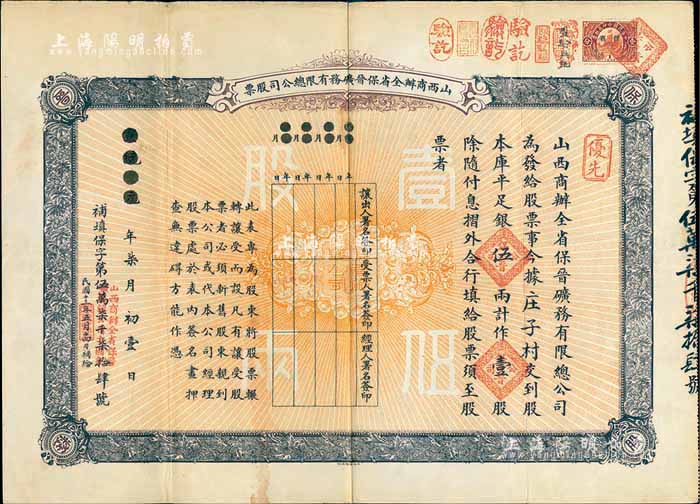 上海陽明拍賣
www.yangmingauction.com
驗訖
驗訖
驗訖
山西商辦全省保晉礦務有限總公司股票
優先
山西商辦全省保晉礦務有限總公司
為發給股票事今據 庄子村交到股
本庫平足銀伍兩計作壹股
除隨付息摺外合行填給股票須至股
票者
壹股
伍兩
年月日
年月日
年月日
年月日
讓出人署名簽印
受票人署名簽印
經理人署名簽印
此表專為股東將股票輾
轉讓受而設凡有讓受股
票者必須新舊股東親到
本公司或代本公司經理
股票處於表內簽名畫押
查無違碍方能作憑
年柒月初壹日
補填保字第伍萬柒千柒拾肆號
上海陽明拍賣
www.yangmingauction.com